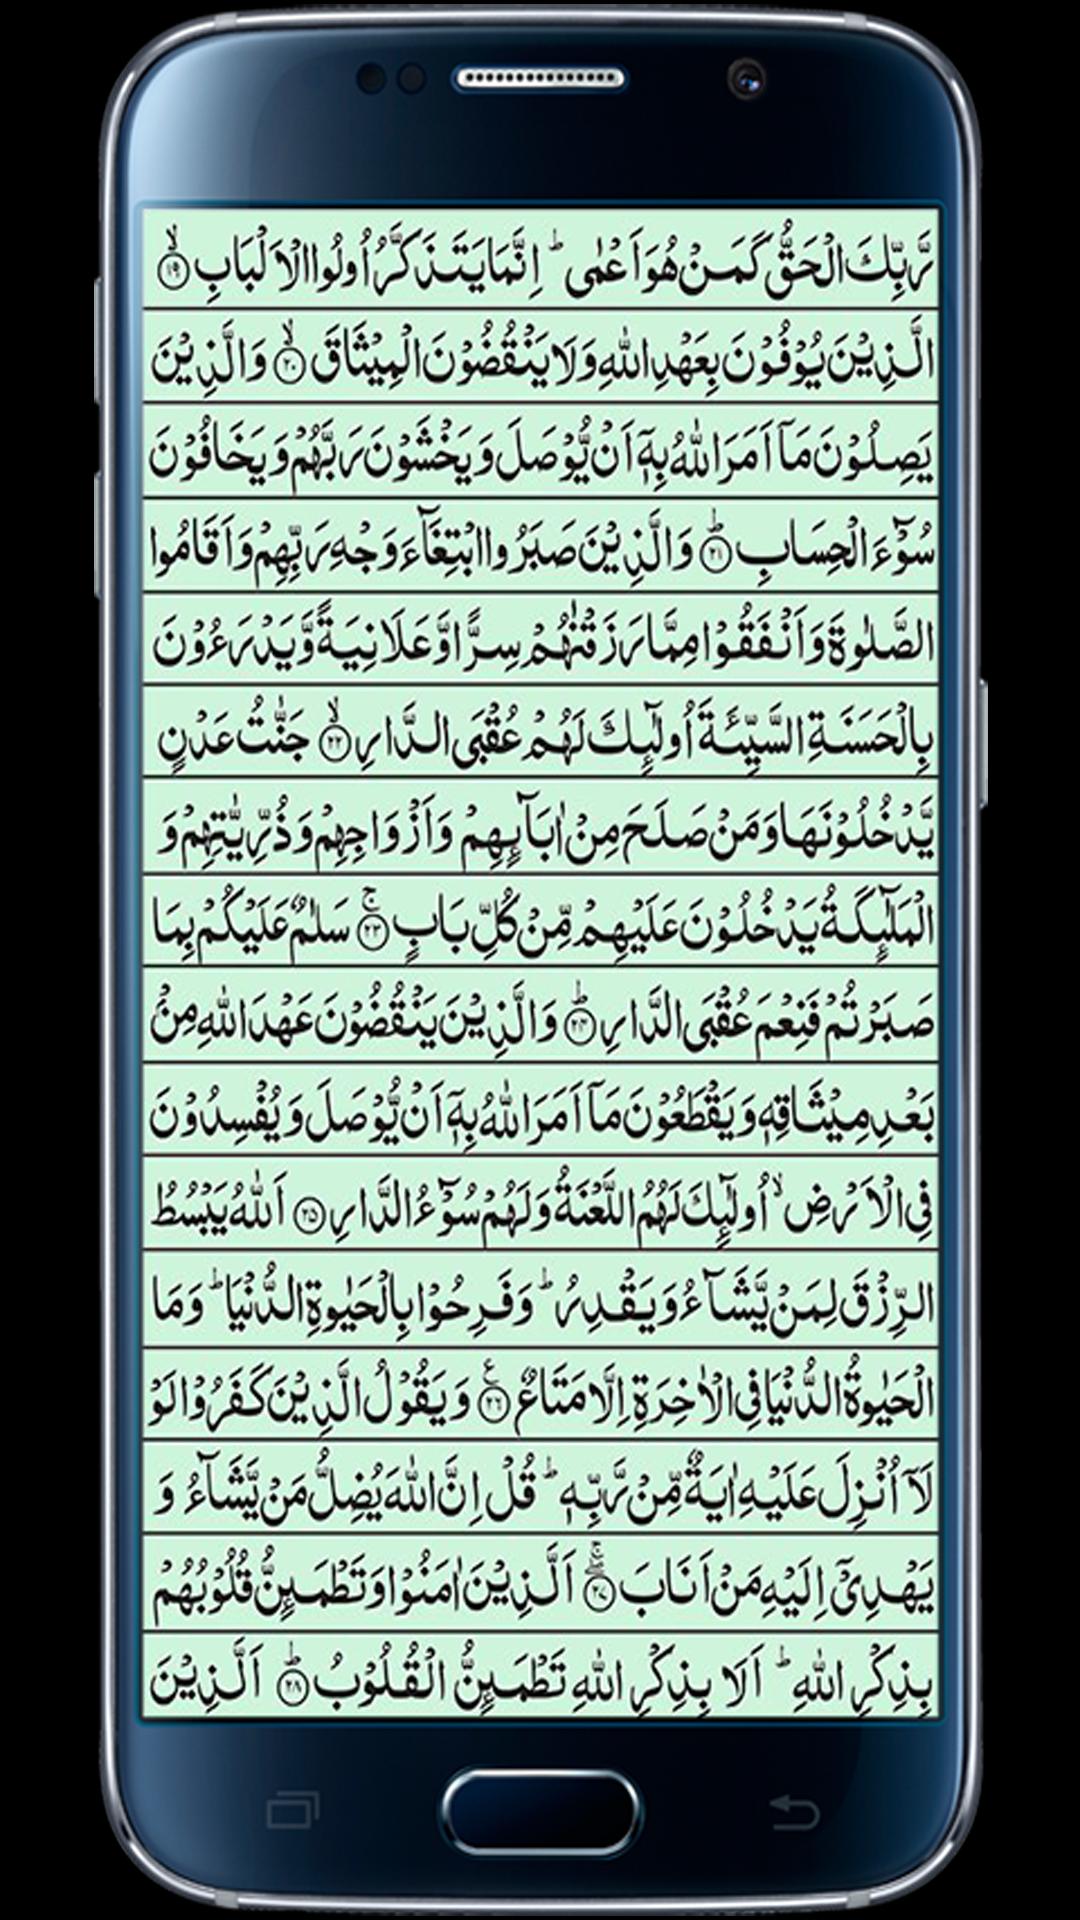 رَّبِّكَ الْحَقُّ كَمَنْ هُوَ اَعْمٰى ؕ اِنَّمَا يَتَذَكَّرُ اُولُوا الْاَلْبَابِ ۙ‏﴿۱۹﴾
الَّذِيْنَ يُوْفُوْنَ بِعَهْدِ اللّٰهِ وَلَا يَنْقُضُوْنَ الْمِيْثَاقَ ۙ‏﴿۲۰﴾ وَالَّذِيْنَ
يَصِلُوْنَ مَاۤ اَمَرَ اللّٰهُ بِهٖۤ اَنْ يُّوْصَلَ وَيَخْشَوْنَ رَبَّهُمْ وَيَخَافُوْنَ
سُوْٓءَ الْحِسَابِ ؕ‏﴿۲۱﴾ وَالَّذِيْنَ صَبَرُوا ابْتِغَآءَ وَجْهِ رَبِّهِمْ وَاَقَامُوا
الصَّلٰوةَ وَاَنْفَقُوْا مِمَّا رَزَقْنٰهُمْ سِرًّا وَّعَلَانِيَةً وَّيَدْرَءُوْنَ
بِالْحَسَنَةِ السَّيِّئَةَ اُولٰٓئِكَ لَهُمْ عُقْبَى الدَّارِ ۙ‏﴿۲۲﴾ جَنّٰتُ عَدْنٍ
يَّدْخُلُوْنَهَا وَمَنْ صَلَحَ مِنْ اٰبَآئِهِمْ وَاَزْوَاجِهِمْ وَذُرِّيّٰتِهِمْ وَ
الْمَلٰٓئِكَةُ يَدْخُلُوْنَ عَلَيْهِمْ مِّنْ كُلِّ بَابٍ ۚ‏﴿۲۳﴾ سَلٰمٌ عَلَيْكُمْ بِمَا
صَبَرْتُمْ فَنِعْمَ عُقْبَى الدَّارِ ؕ‏﴿۲۴﴾ وَالَّذِيْنَ يَنْقُضُوْنَ عَهْدَ اللّٰهِ مِنْۢ
بَعْدِ مِيْثَاقِهٖ وَيَقْطَعُوْنَ مَاۤ اَمَرَ اللّٰهُ بِهٖۤ اَنْ يُّوْصَلَ وَيُفْسِدُوْنَ
فِى الْاَرْضِ ۙ اُولٰٓئِكَ لَهُمُ اللَّعْنَةُ وَلَهُمْ سُوْٓءُ الدَّارِ ﴿۲۵﴾ اَللّٰهُ يَبْسُطُ
الرِّزْقَ لِمَنْ يَّشَآءُ وَيَقْدِرُ ؕ وَفَرِحُوْا بِالْحَيٰوةِ الدُّنْيَا ؕ وَمَا
الْحَيٰوةُ الدُّنْيَا فِى الْاٰخِرَةِ اِلَّا مَتَاعٌ ﴿۲۶﴾ع وَيَقُوْلُ الَّذِيْنَ كَفَرُوْا لَوْ
لَاۤ اُنْزِلَ عَلَيْهِ اٰيَةٌ مِّنْ رَّبِّهٖ ؕ قُلْ اِنَّ اللّٰهَ يُضِلُّ مَنْ يَّشَآءُ وَ
يَهْدِىْۤ اِلَيْهِ مَنْ اَنَابَ ۚ‏﴿۲۷﴾ اَلَّذِيْنَ اٰمَنُوْا وَتَطْمَئِنُّ قُلُوْبُهُمْ
بِذِكْرِ اللّٰهِ ؕ اَلَا بِذِكْرِ اللّٰهِ تَطْمَئِنُّ الْقُلُوْبُ ؕ‏﴿۲۸﴾ اَلَّذِيْنَ